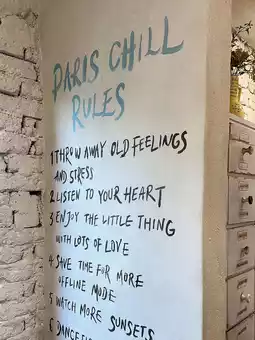 PARIS CHILL
RULES
1 THROW AWAY OLD FEELINGS
AND STRESS
2 LISTEN TO YOUR HEART
3 ENJOY THE LITTLE THING
WITH LOTS OF LOVE
4 SAVE TIME FOR MORE
OFFLINE MODE
5 WATCH MORE SUNSETS
6